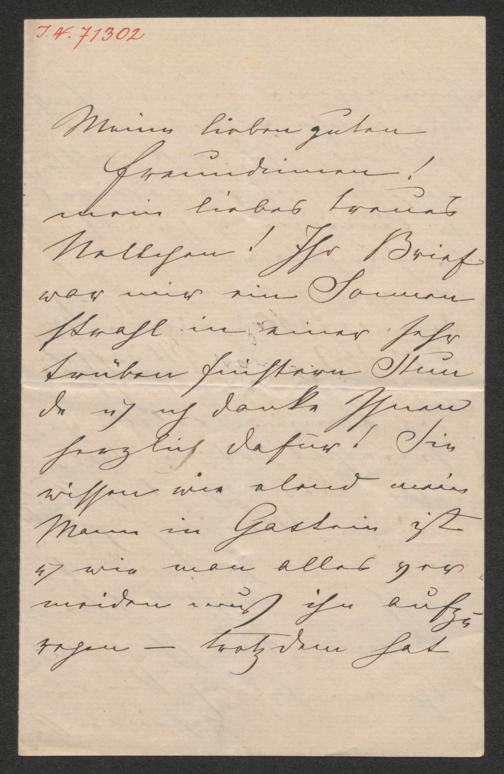 J.N. 71302
Meine lieben guten
Freundinnen!
mein liebes treues
Nettchen! Ihr Brief
war mir ein Sonnen
strahl in einer sehr
trüben finstern Stun
de u ich danke Ihnen
herzlich dafür! Sie
wissen wie elend mein
Mann in Gastein ist
u wie man alles ver
meiden muß ihn aufzu
regen — trotzdem hat